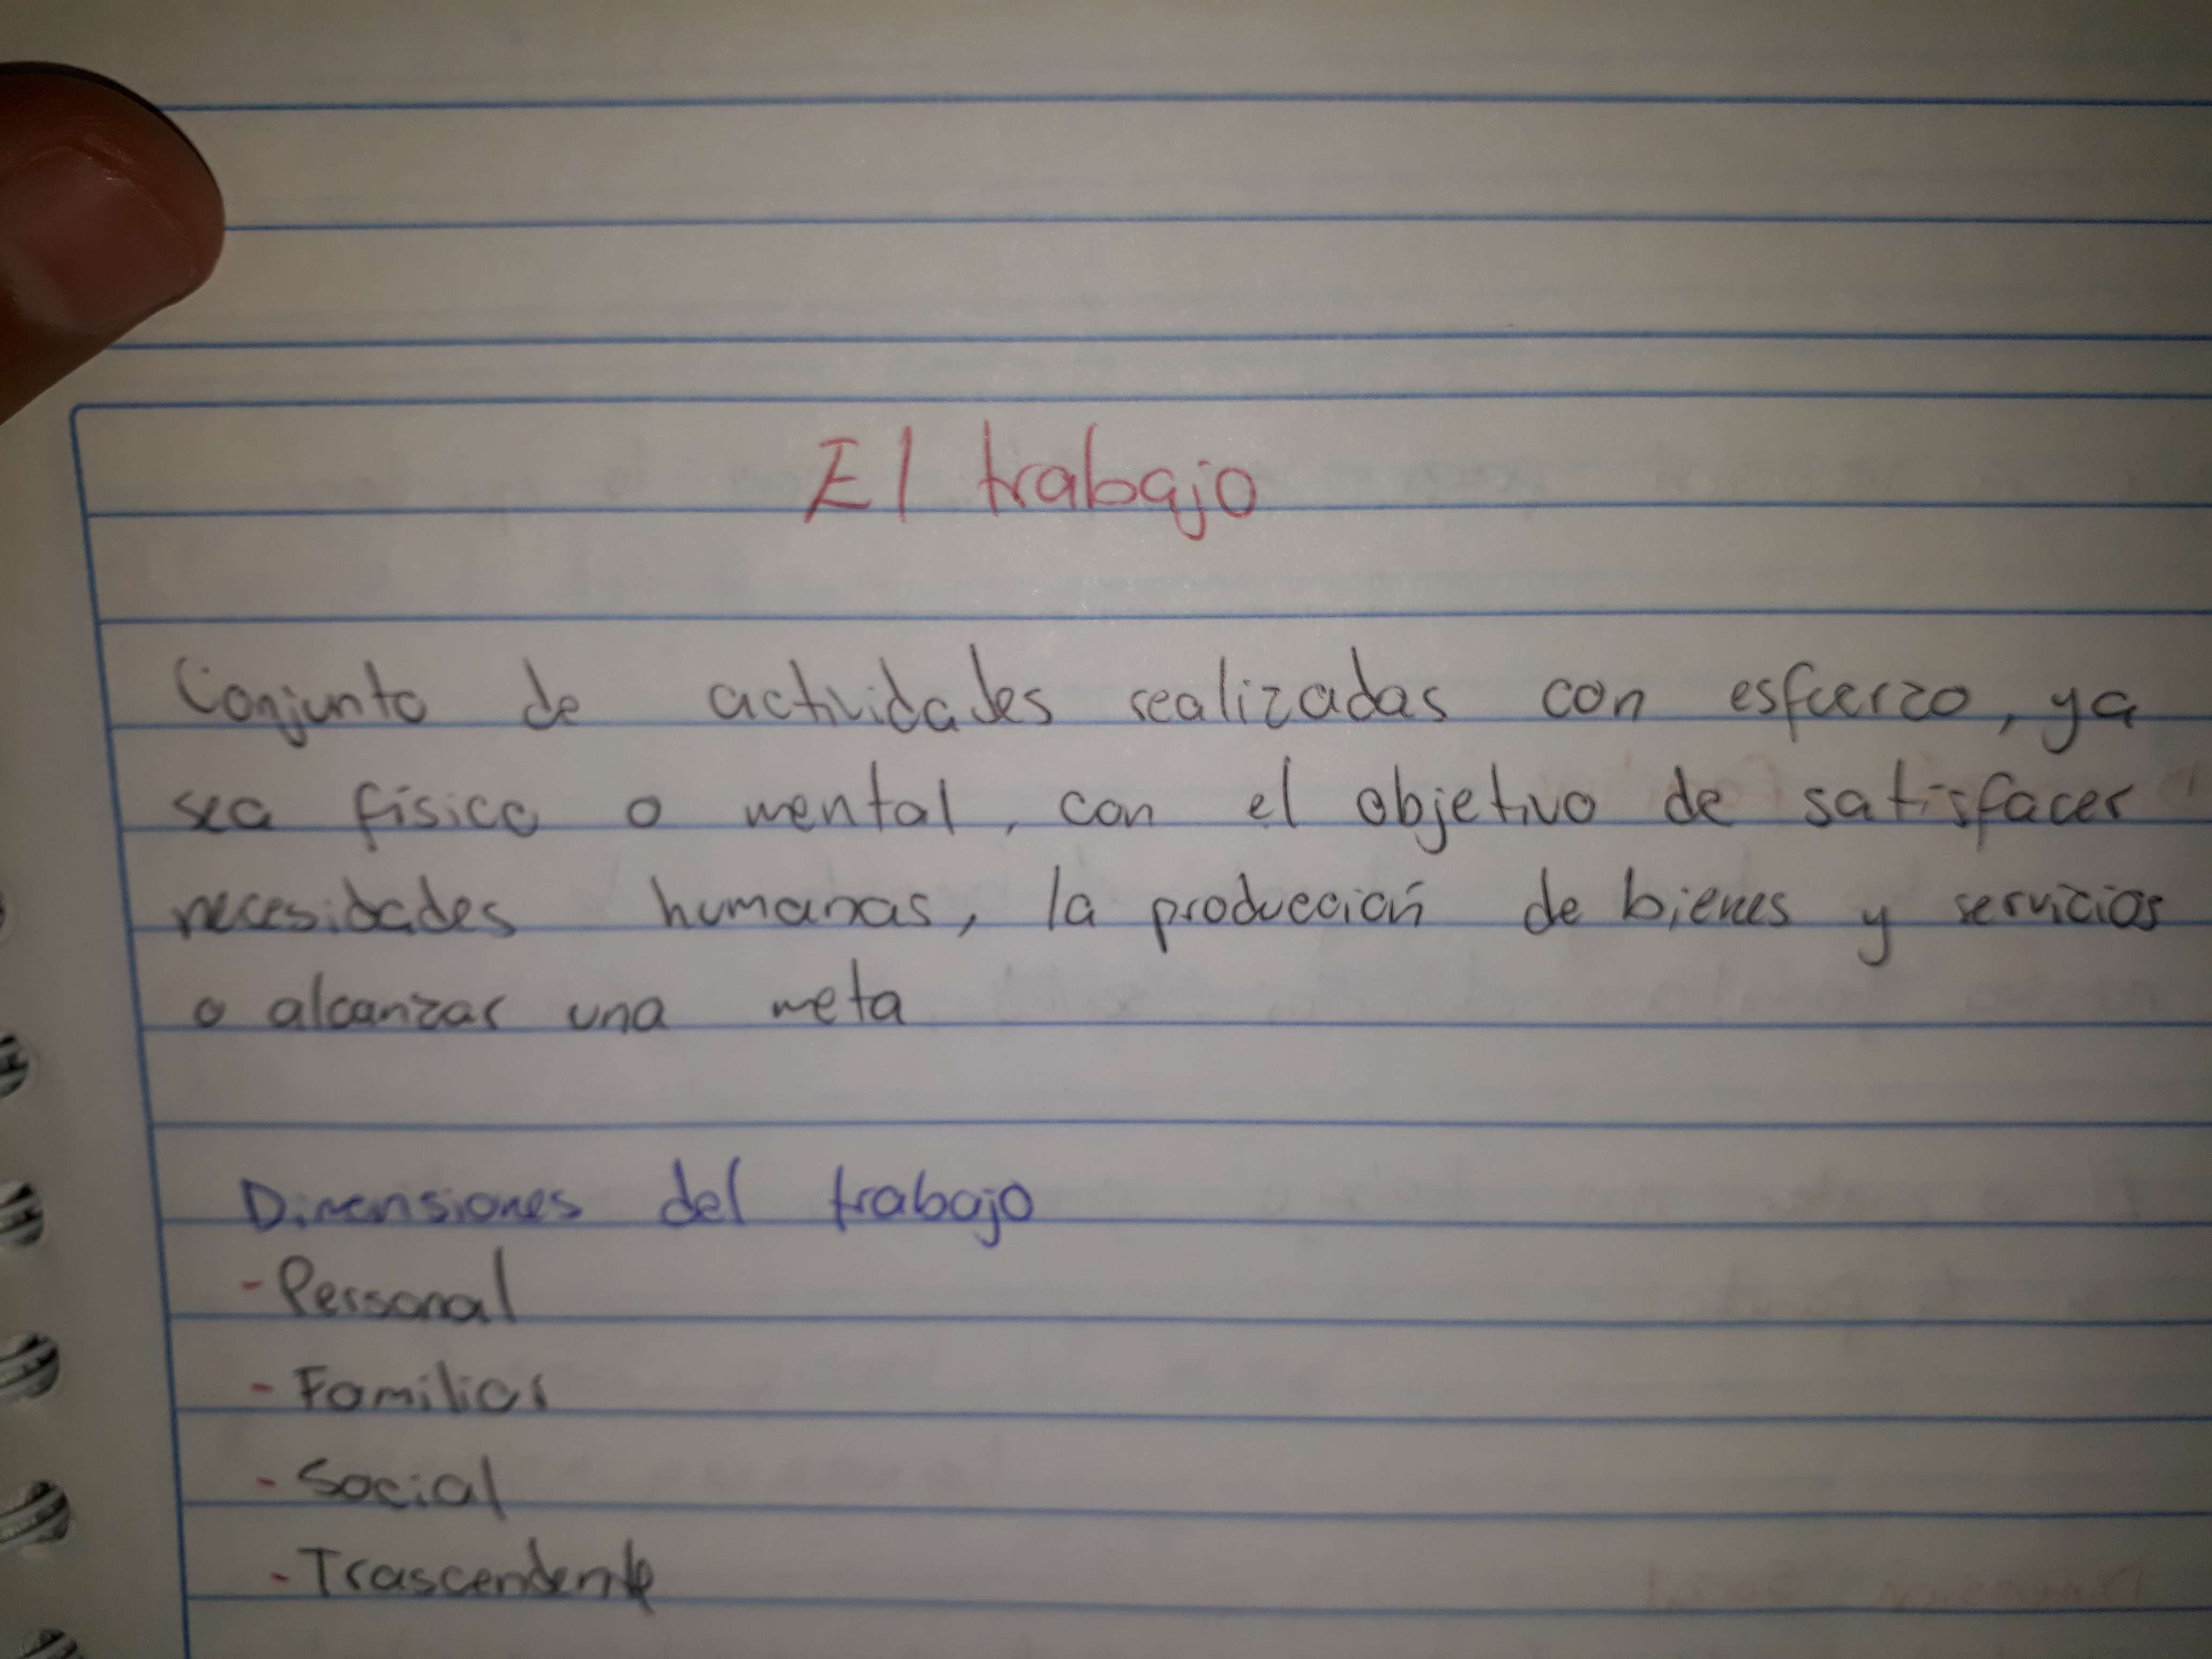 El trabajo
Conjunto de actividades realizadas con esfuerzo, ya
sea físico o mental, con el objetivo de satisfacer
necesidades humanas, la producción de bienes y servicios
o alcanzar una meta
Dimensiones del trabajo
- Personal
- Familiar
- Social
- Trascendente